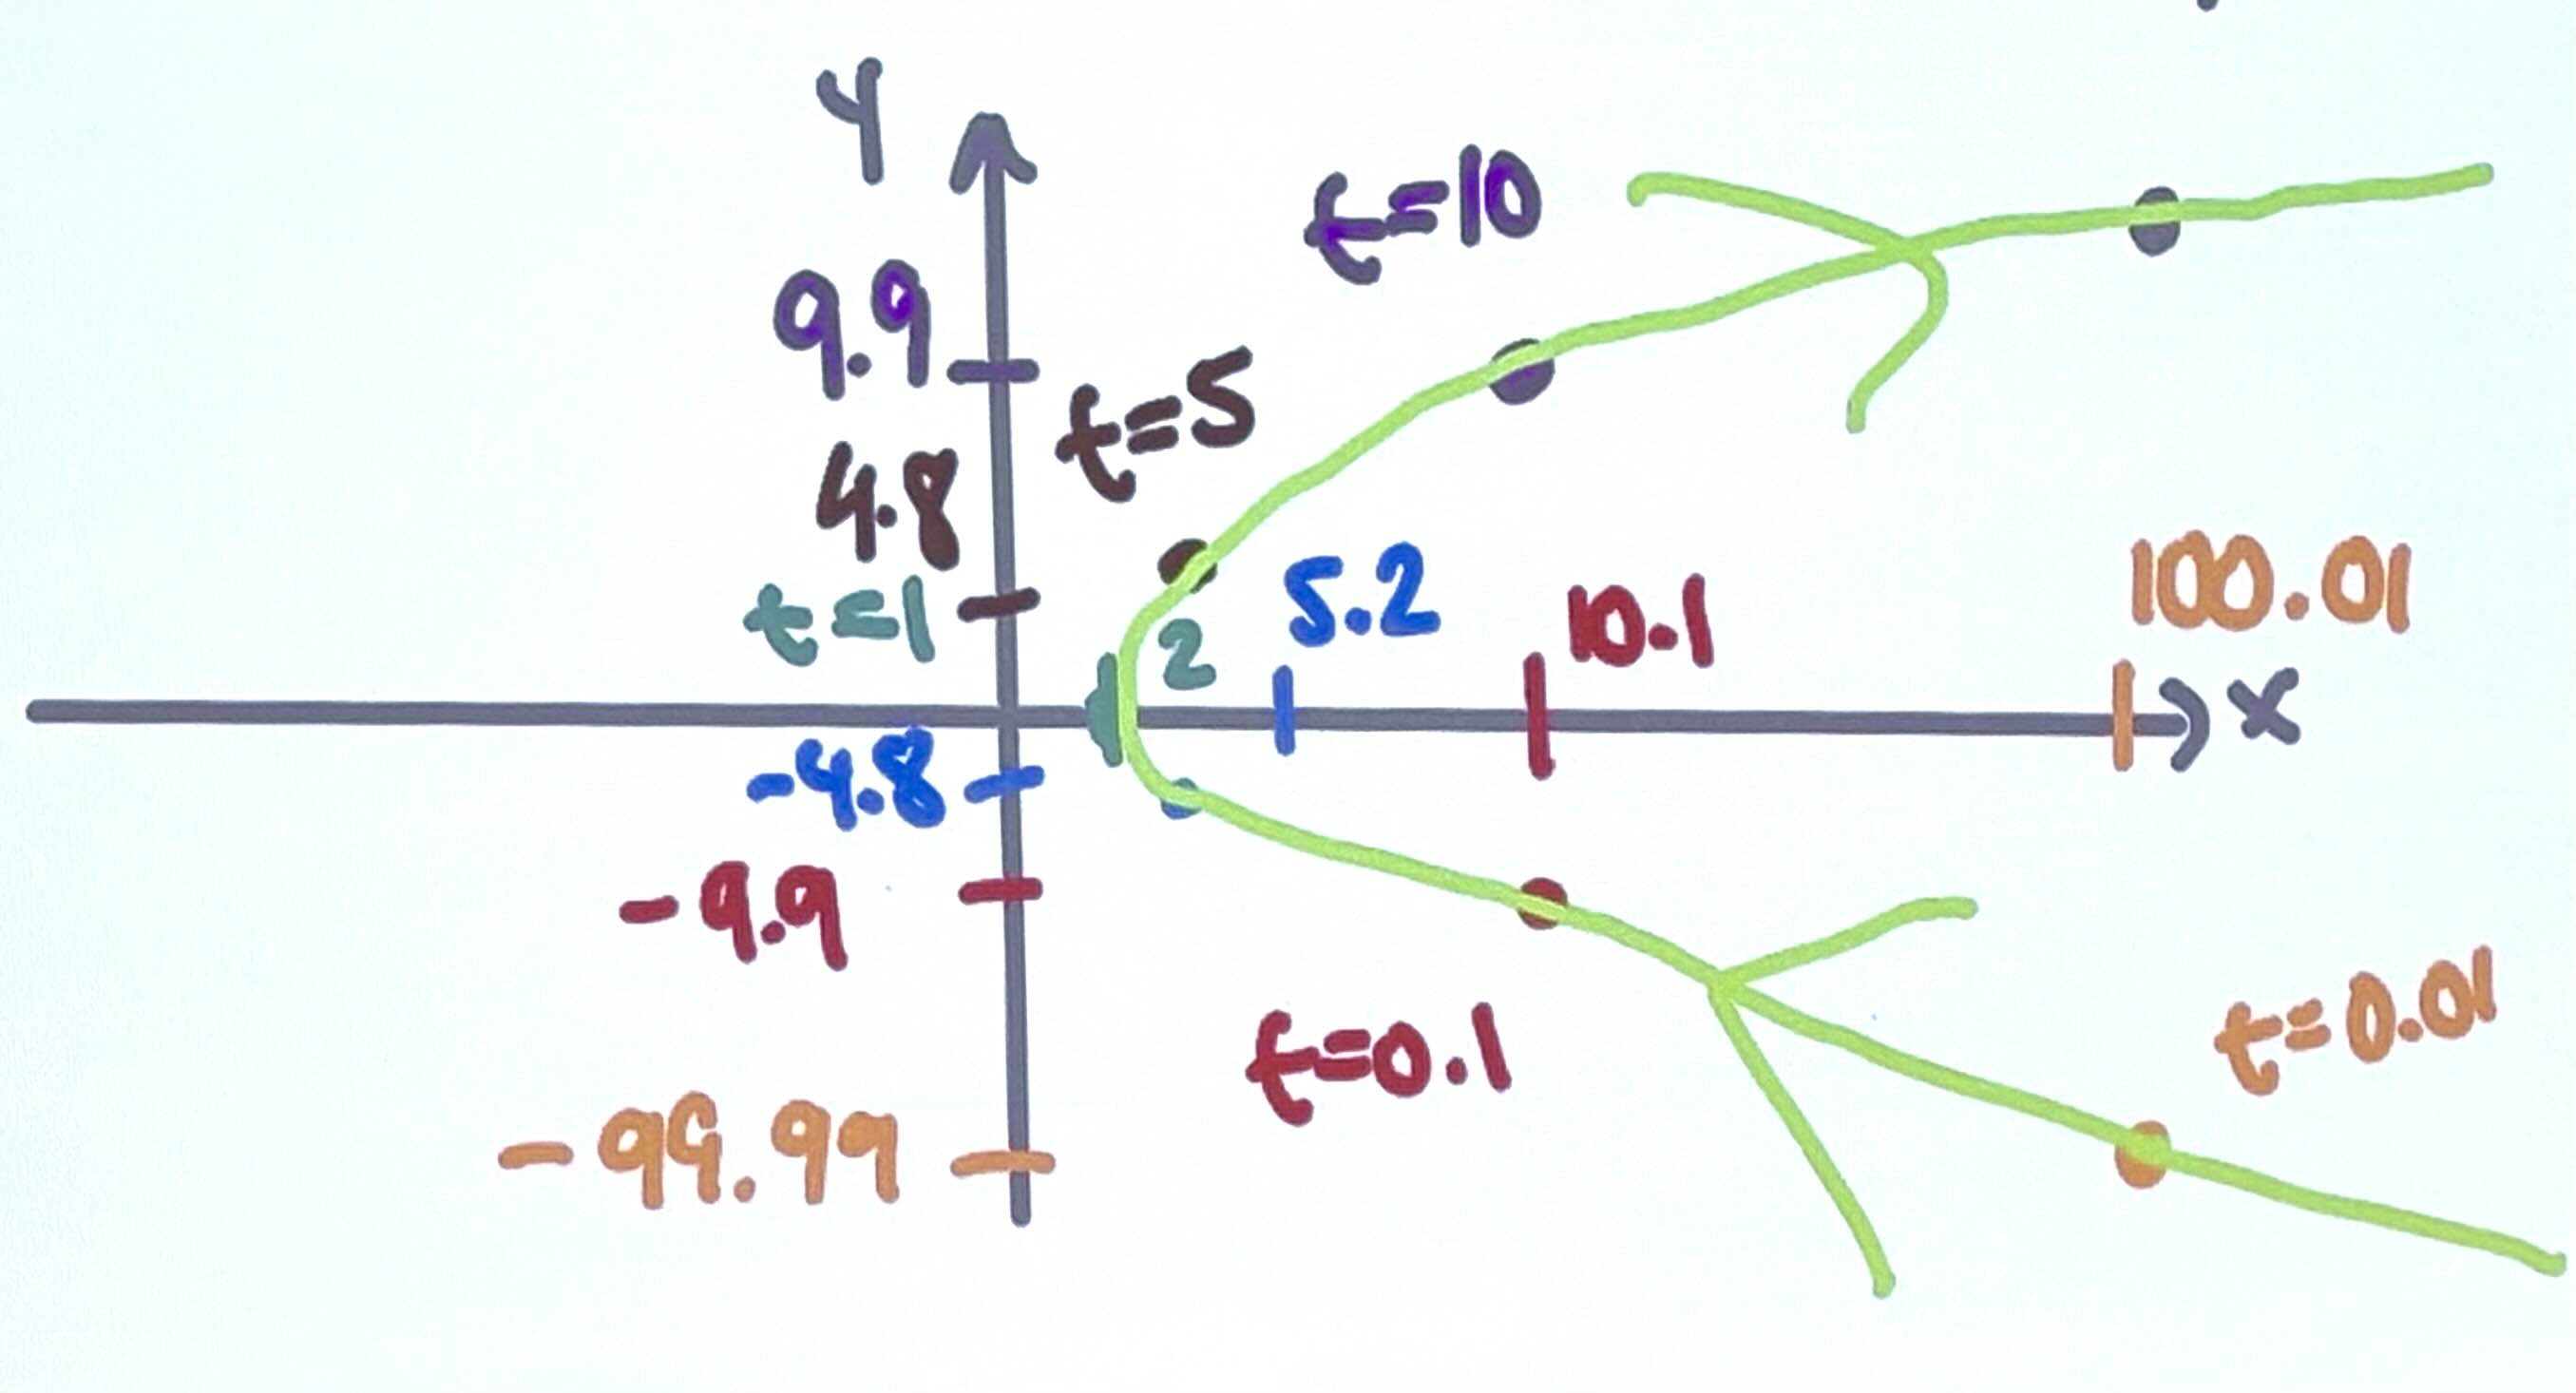 Y
t=10
9.9
t=5
4.8
t=1
2
5.2
10.1
100.01
x
-4.8
-9.9
t=0.1
t=0.01
-99.99